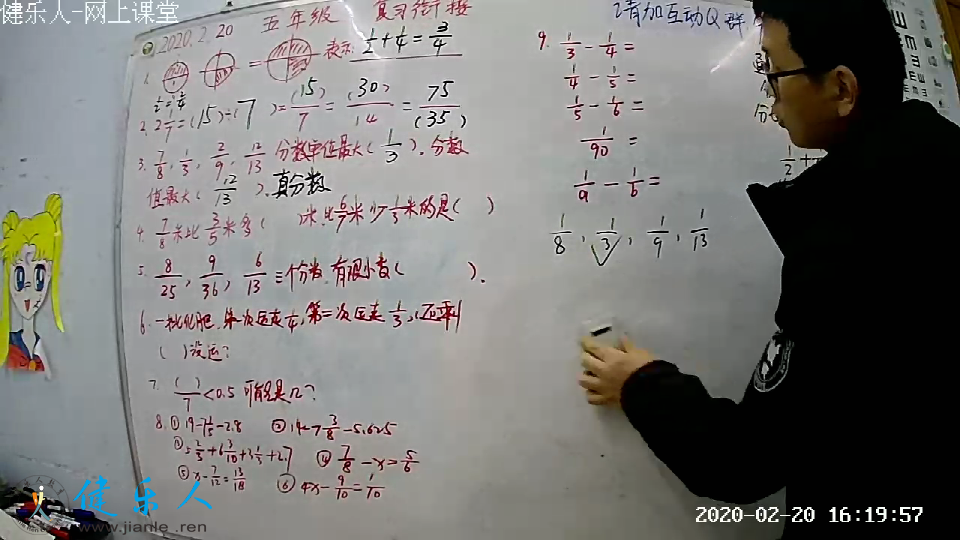 健乐人-网上课堂
2020.2.20 五年级 复习衔接
请加互动Q群
1. = 表示 1/2+1/4=3/4
2. 2 1/7=(15)÷(7)=(15)/7=(30)/14=75/(35)
3. 7/8, 1/3, 2/9, 12/13 分数单位最大(1/3). 分数
值最大(12/13). 真分数
4. 7/8米比3/5米多( )米, 比6/7米少1/3米的是( )
5. 8/25, 9/36, 6/13 三个分数, 有限小数( ).
6. 一批化肥, 第一次运走1/4, 第二次运走1/3, 还剩
( )没运?
7. ( )/7<0.5 可能是几?
8. ① 19-7 1/5-2.8 ② 14-7 3/8-5.625
③ 5 2/5+6 3/10+3 1/3+2.7 ④ 7/8-x=5/6
⑤ x-7/12=13/18 ⑥ 4x-9/10=1/10
9. 1/3-1/4=
1/4-1/5=
1/5-1/6=
1/90=
1/9-1/6=
1/8, 1/3, 1/9, 1/13
1/2+
健乐人
www.jianle.ren
2020-02-20 16:19:57